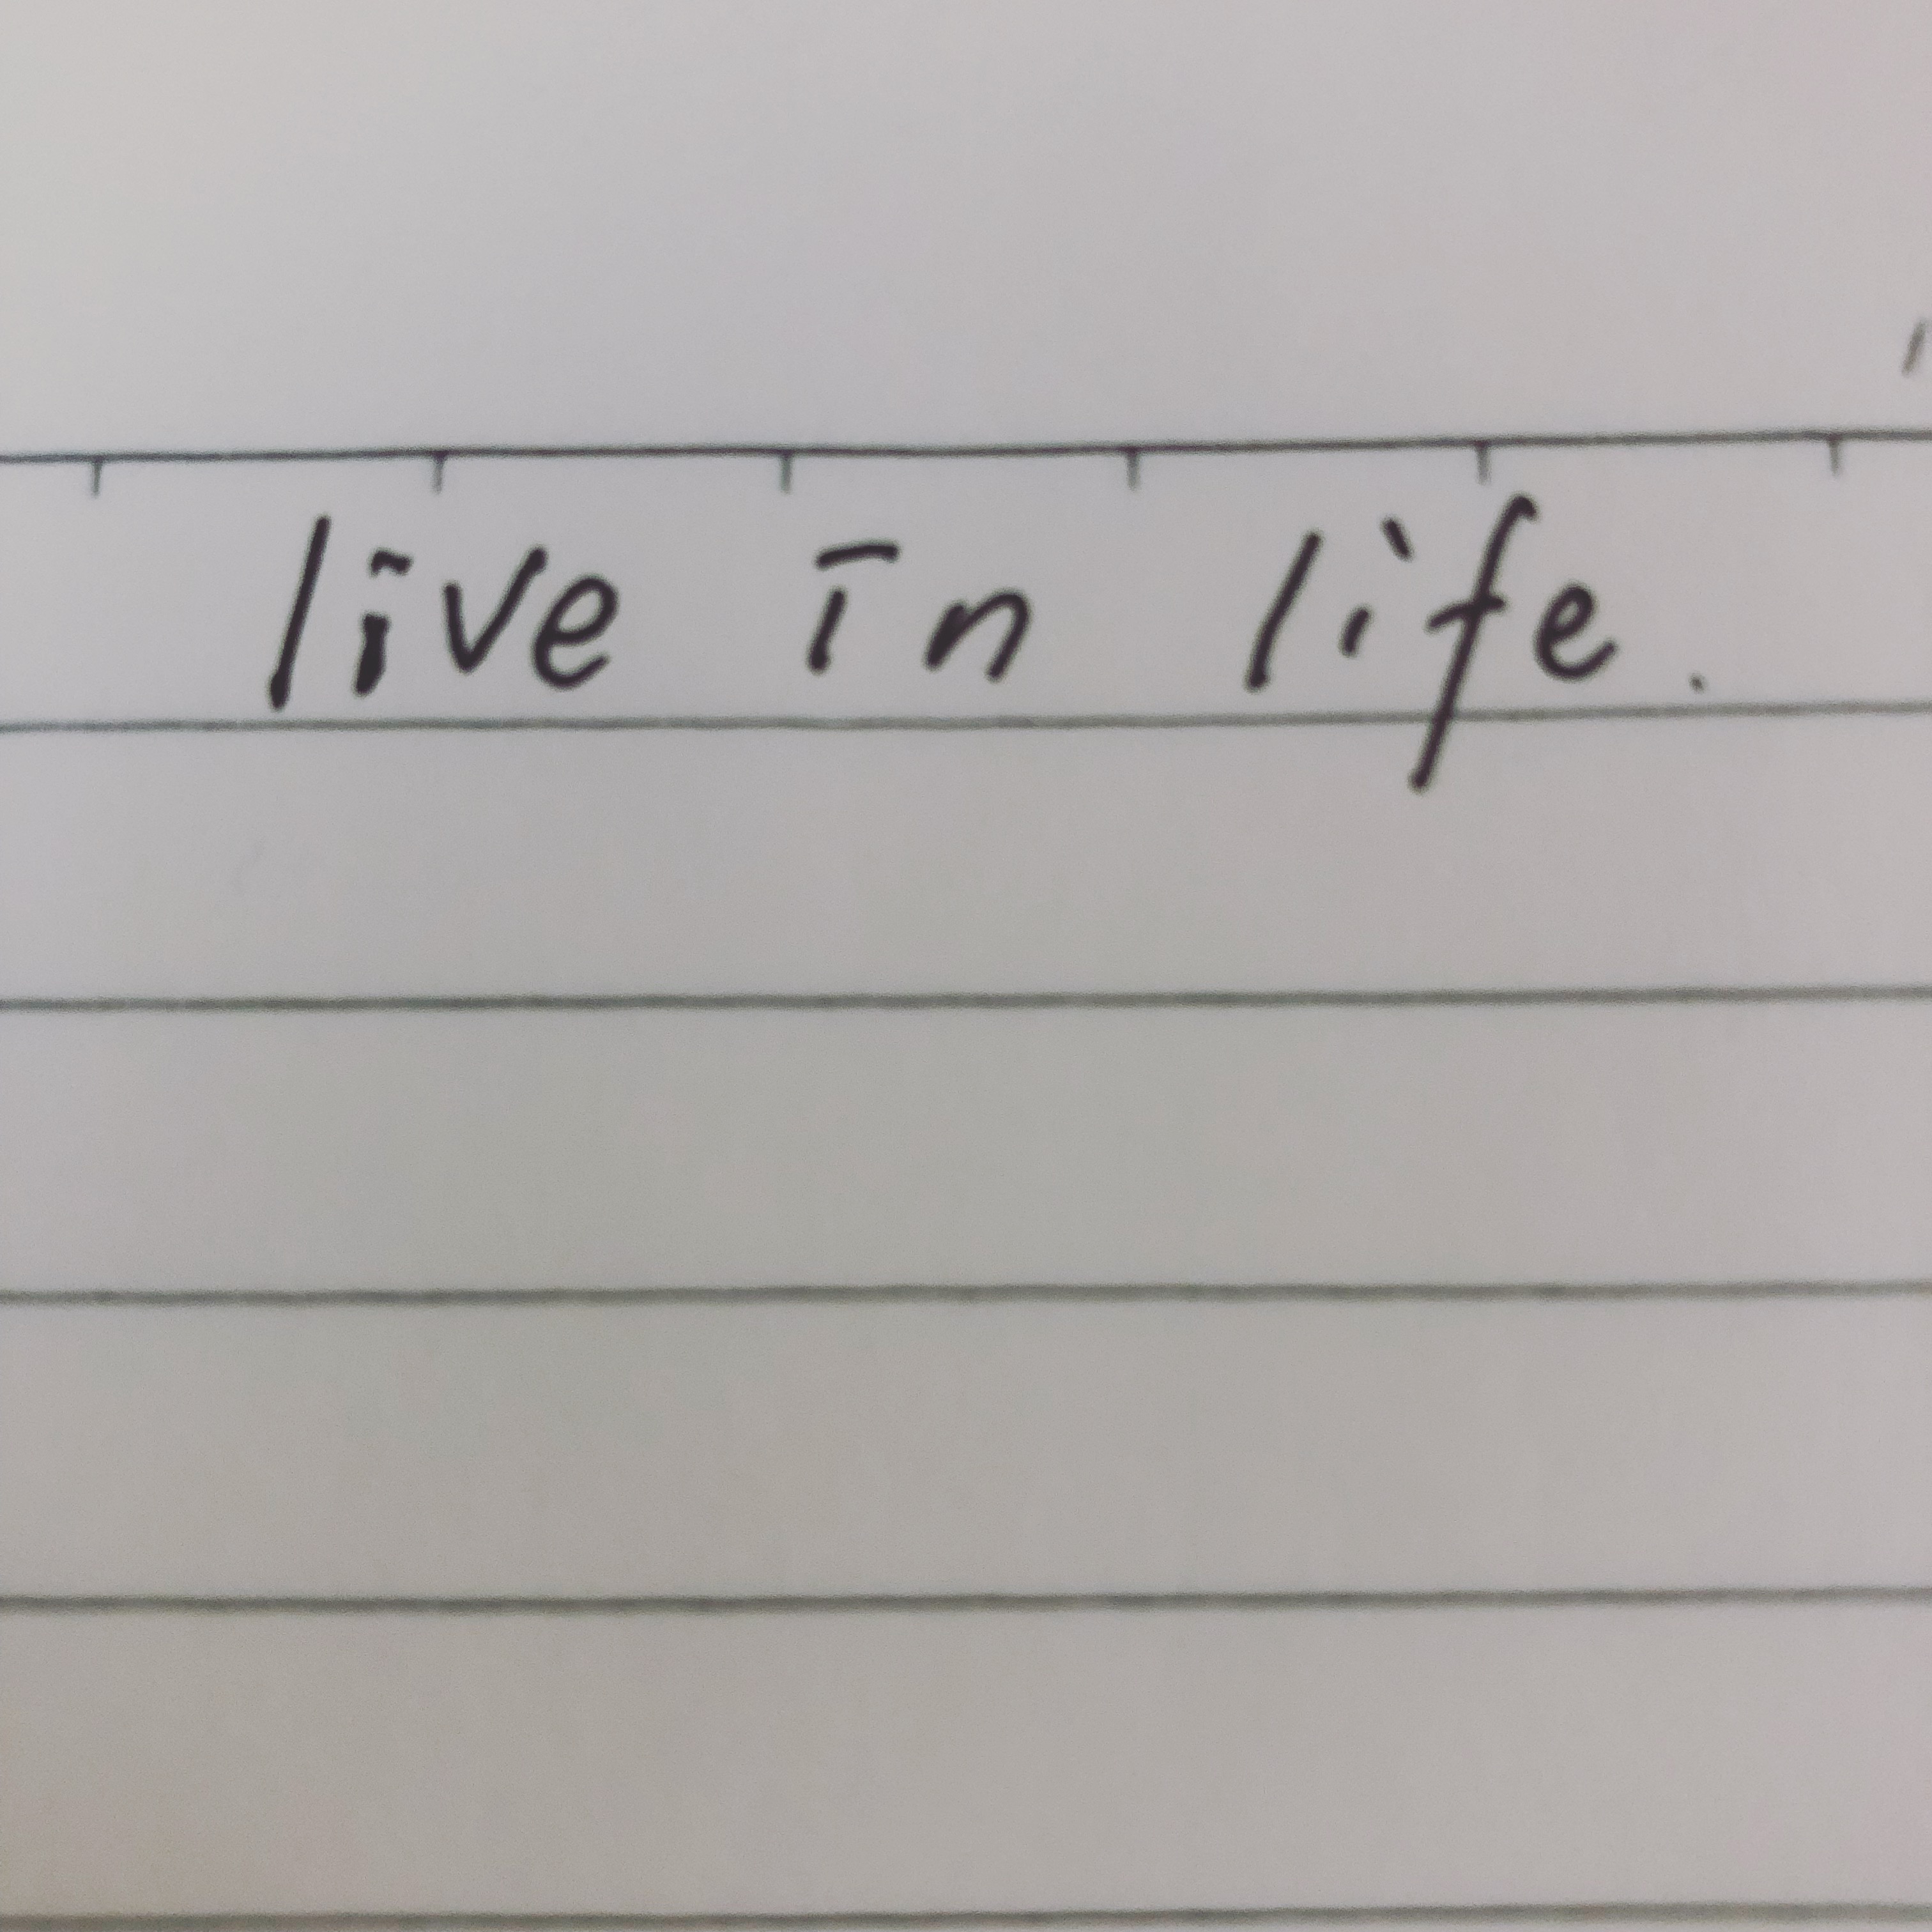 live in life.